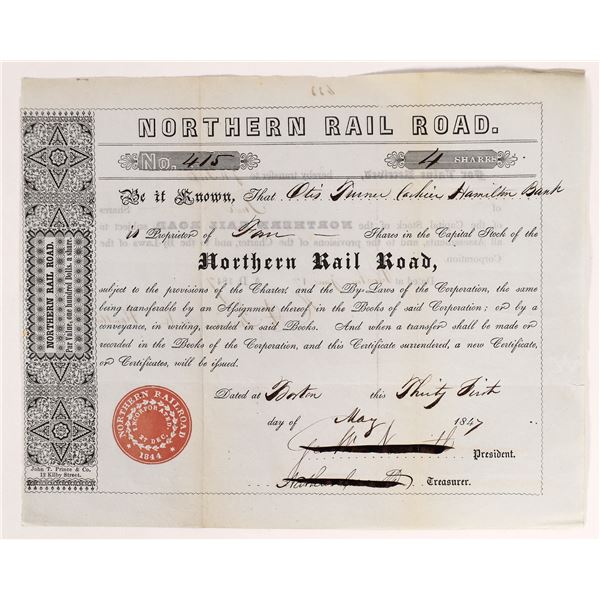 NORTHERN RAIL ROAD.
No. 415
4 SHARES
Be it Known, That Otis Turner Cashier Hamilton Bank
is Proprietor of Four — Shares in the Capital Stock of the
Northern Rail Road,
subject to the provisions of the Charter, and the By-Laws of the Corporation, the same
being transferable by an Assignment thereof in the Books of said Corporation; or by a
conveyance, in writing, recorded in said Books. And when a transfer shall be made or
recorded in the Books of the Corporation, and this Certificate surrendered, a new Certificate,
or Certificates, will be issued.
Dated at Boston this Thirty First
day of May 1847
President.
Treasurer.
NORTHERN RAIL ROAD.
Par Value, one hundred Dolls. a share.
John T. Prince & Co.
12 Kilby Street.
NORTHERN RAILROAD
INCORPORATED
27 DEC.
1844